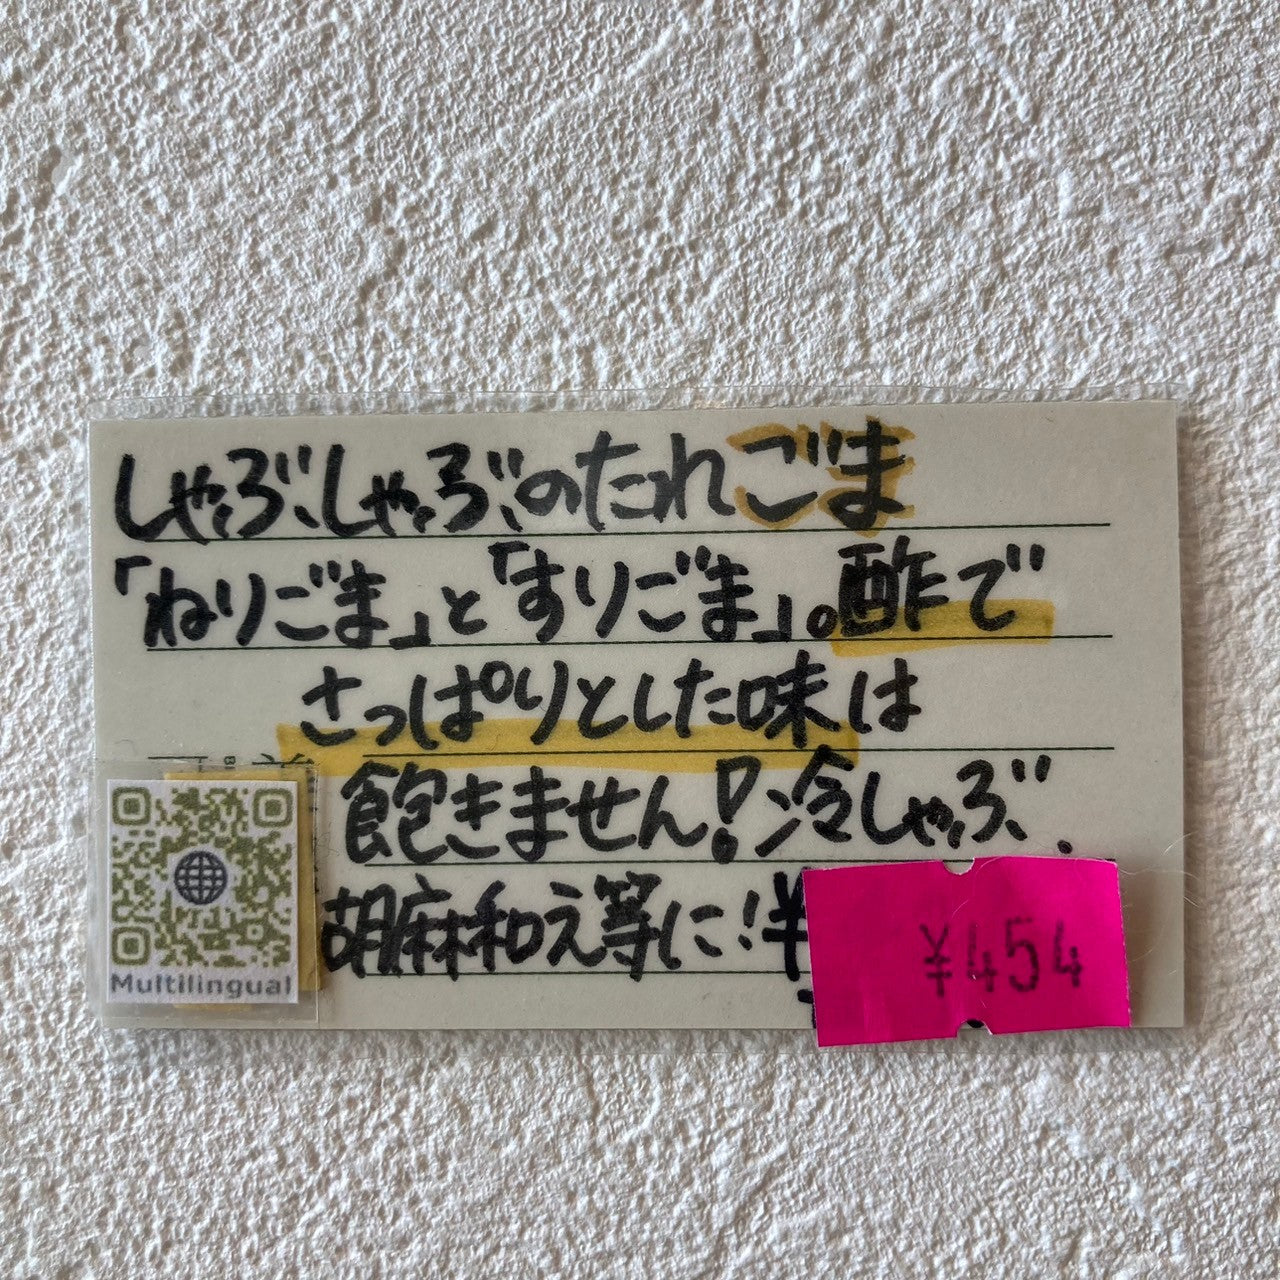 しゃぶしゃぶのたれごま
「ねりごま」と「すりごま」。酢で
さっぱりとした味は
飽きません!冷しゃぶ、
胡麻和え等に!¥
¥454
Multilingual